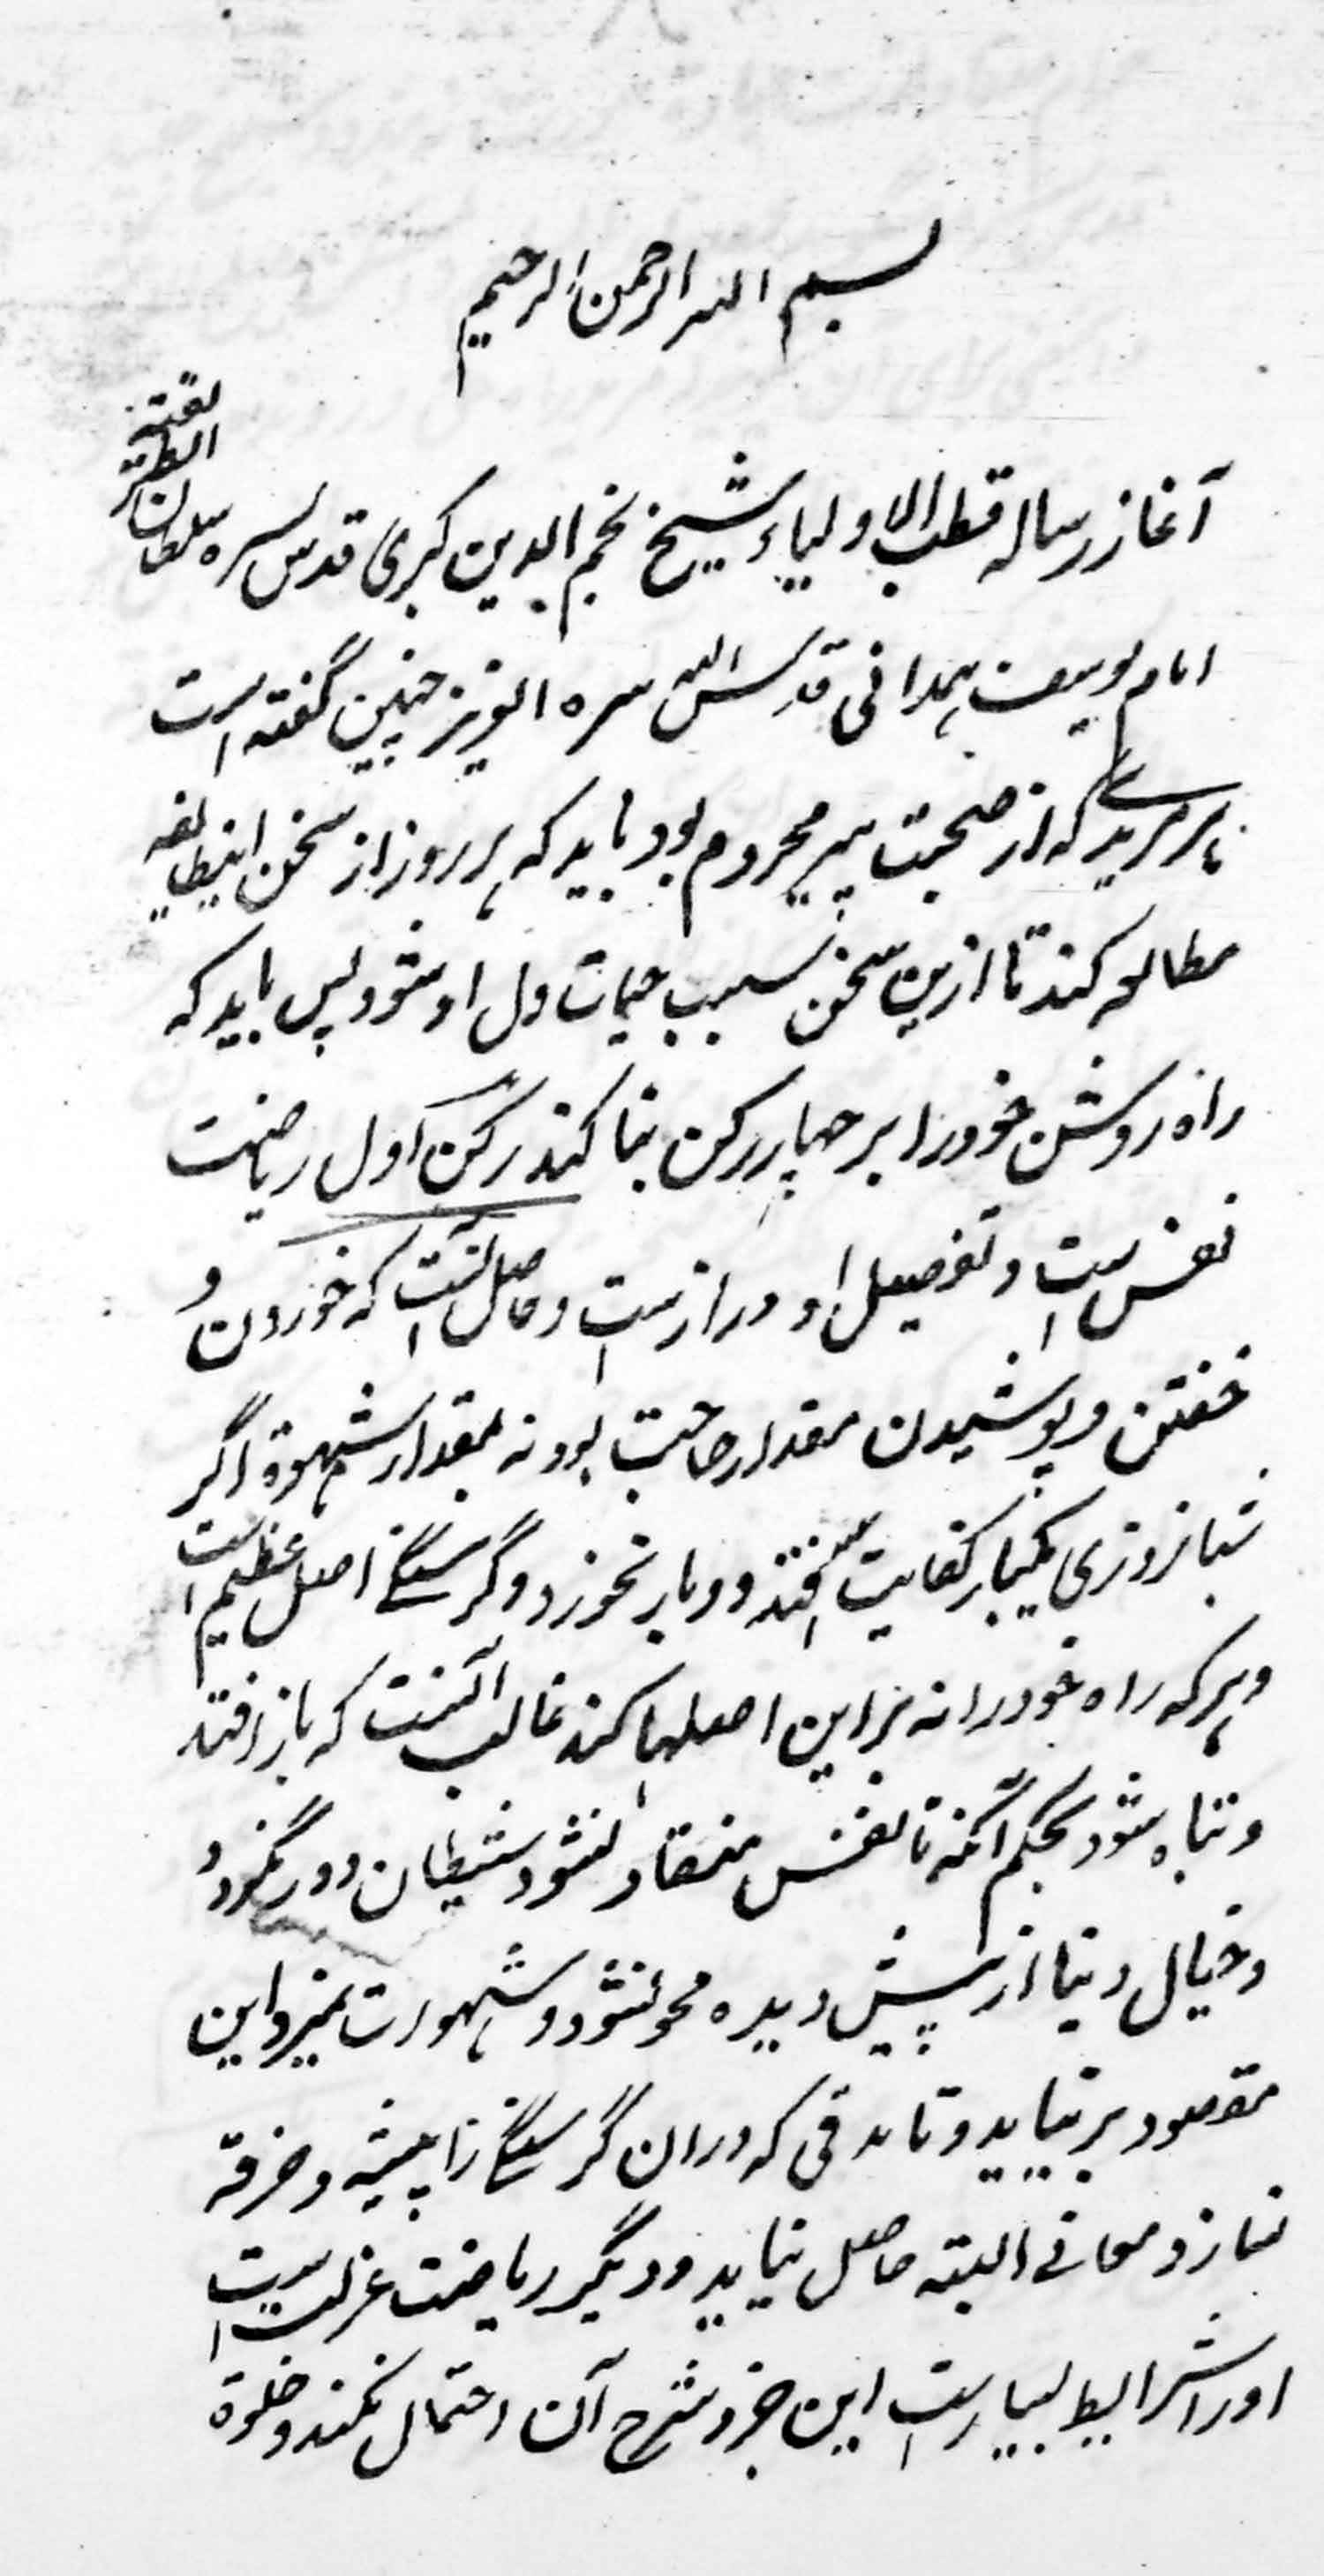 بسم الله الرحمن الرحیم
آغاز رساله قطب الاولیاء شیخ نجم الدین کبری قدس سره سلطان الطریقته
امام یوسف همدانی قدس الله سره العزیز چنین گفته است
هر مریدی که از صحبت پیر محروم بود باید که هر روز از سخن اینطایفه
مطالعه کند تا ازین سخن سبب حیات دل او شود پس باید که
راه روشن خود را بر چهار رکن بنا کند رکن اول ریاضت
نفس است و تفصیل او دراز است و حاصل آنست که خوردن و
خفتن و پوشیدن بمقدار حاجت بود نه بمقدار شهوة اگر
شبانروزی یکبار کفایت افتد دوبار نخورد و گرسنگی اصل عظیم است
و هر که راه خود را نه براین اصلها کند غالب آنست که باز افتد
و تباه شود بحکم آنکه تا نفس منقاد نشود شیطان دور نگردد و
و خیال دنیا از پیش دیده محو نشود و شهوات نمیرد این
مقصود بر نیاید و تا مدتی که دران گرسنگی را پیشه و حرفه
نسازد معانی البته حاصل نیاید و دیگر ریاضت عزلت است
او را شرایط بسیار است این جزو شرح آن احتمال نکند و خلوة